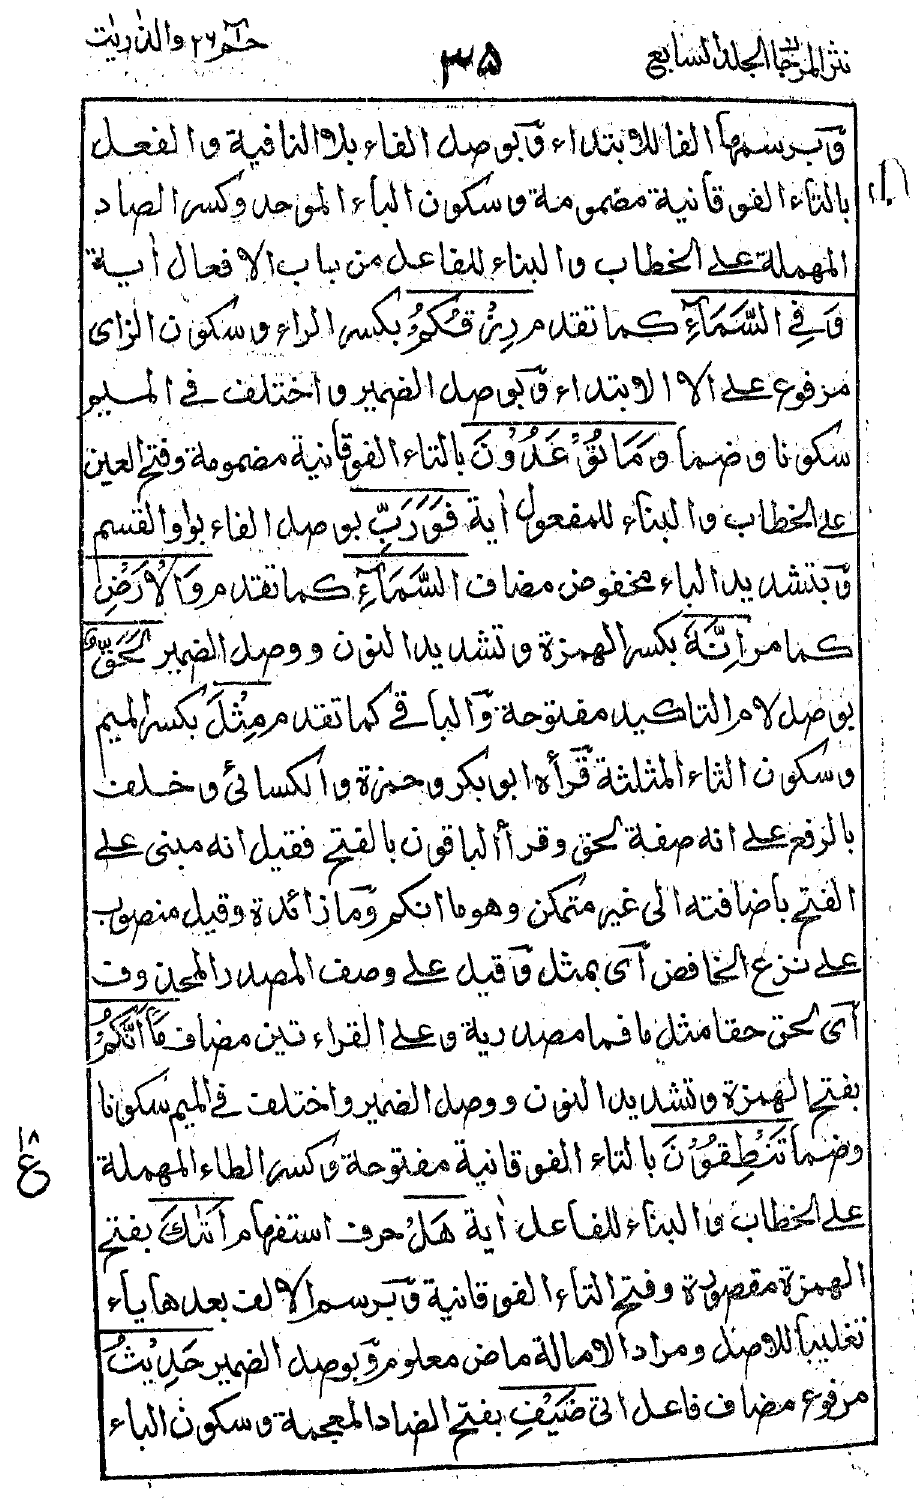 نثر المرجان المجلد السابع
٣٥
حٰمٓ ٢٦ والذٰريٰت
وَبرسمها الفا للابتداء وَبوصل الفاء بلا النافية والفعل
بالتاء الفوقانية مضمومة وسكون الباء الموحد وكسر الصاد
المهملة على الخطاب والبناء للفاعل من باب الافعال اٰية
وَفِي السَّمَآءِ كما تقدم رِزْقُكُمْ بكسر الراء وسكون الزاى
مرفوع على الابتداء وَبوصل الضمير واختلف فى الميم
سكونا وضما وَمَا تُوْعَدُوْنَ بالتاء الفوقانية مضمومة وفتح العين
على الخطاب والبناء للمفعول اٰية فَوَرَبِّ بوصل الفاء بواو القسم
وَبتشديد الباء مخفوض مضاف السَّمَآءِ كما تقدم وَالْاَرْضِ
كما مر اِنَّهٗ بكسر الهمزة وتشديد النون ووصل الضمير لَحَقٌّ
بوصل لام التاكيد مفتوحة وَالباقى كما تقدم مِثْلَ بكسر الميم
وسكون الثاء المثلثة قَرأه ابو بكر وحمزة والكسائى وخلف
بالرفع على انه صفة لحق وقرأ الباقون بالفتح فقيل انه مبنى على
الفتح باضافته الى غير متمكن وهو ما انكم وَما زائدة وقيل منصوب
على نزع الخافض اَى بمثل وَقيل على وصف المصدر المحذوف
اَى لحق حقا مثل ما فما مصدرية وعلى القراءتين مضاف مَآ اَنَّكُمْ
بفتح الهمزة وتشديد النون ووصل الضمير واختلف فى الميم سكونا
وضما تَنْطِقُوْنَ بالتاء الفوقانية مفتوحة وَكسر الطاء المهملة
١٨
ع
على الخطاب والبناء للفاعل اٰية هَلْ حرف استفهام اَتٰىكَ بفتح
الهمزة مقصورة وفتح التاء الفوقانية وَبرسم الالف بعدها ياء
تغليبا للاصل ومراد الامالة ماض معلوم وَبوصل الضمير حَدِيْثُ
مرفوع مضاف فاعل اتى ضَيْفِ بفتح الضاد المعجمة وسكون الياء